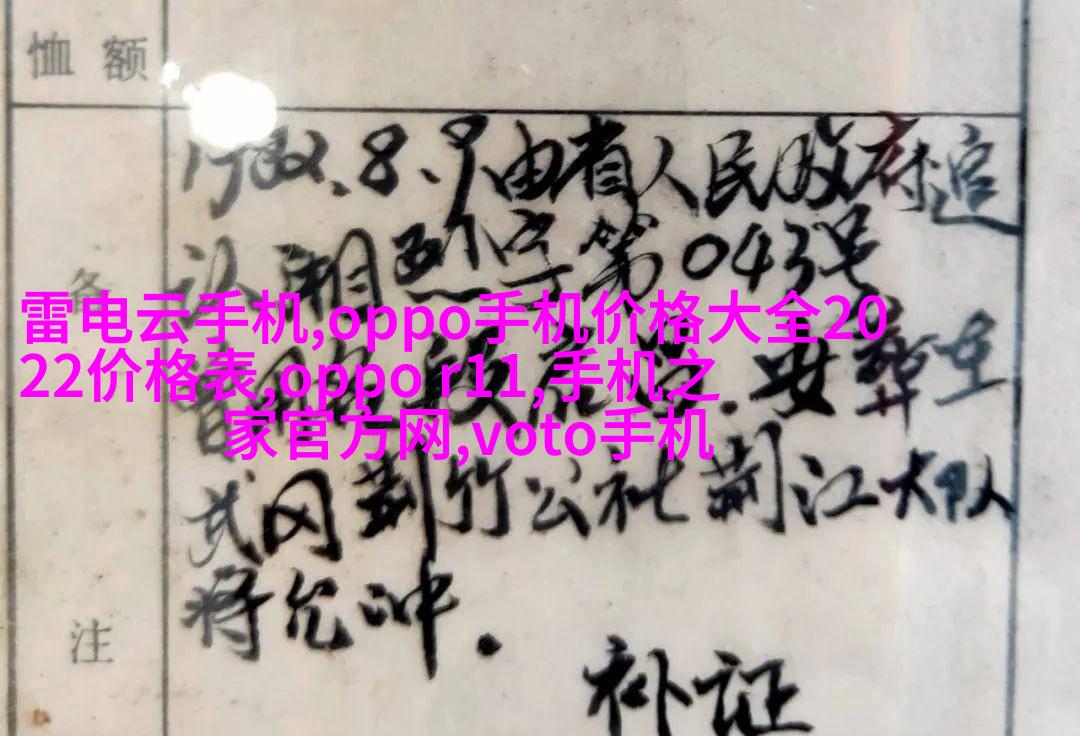 恤额
1982.8.9由省人民政府追
认湘烈字第043号
备
雷电云手机,oppo手机价格大全20
22价格表,oppo r11,手机之
家官方网,voto手机
安葬在
武冈荆竹公社荆江大队
将允冲.
注
补证